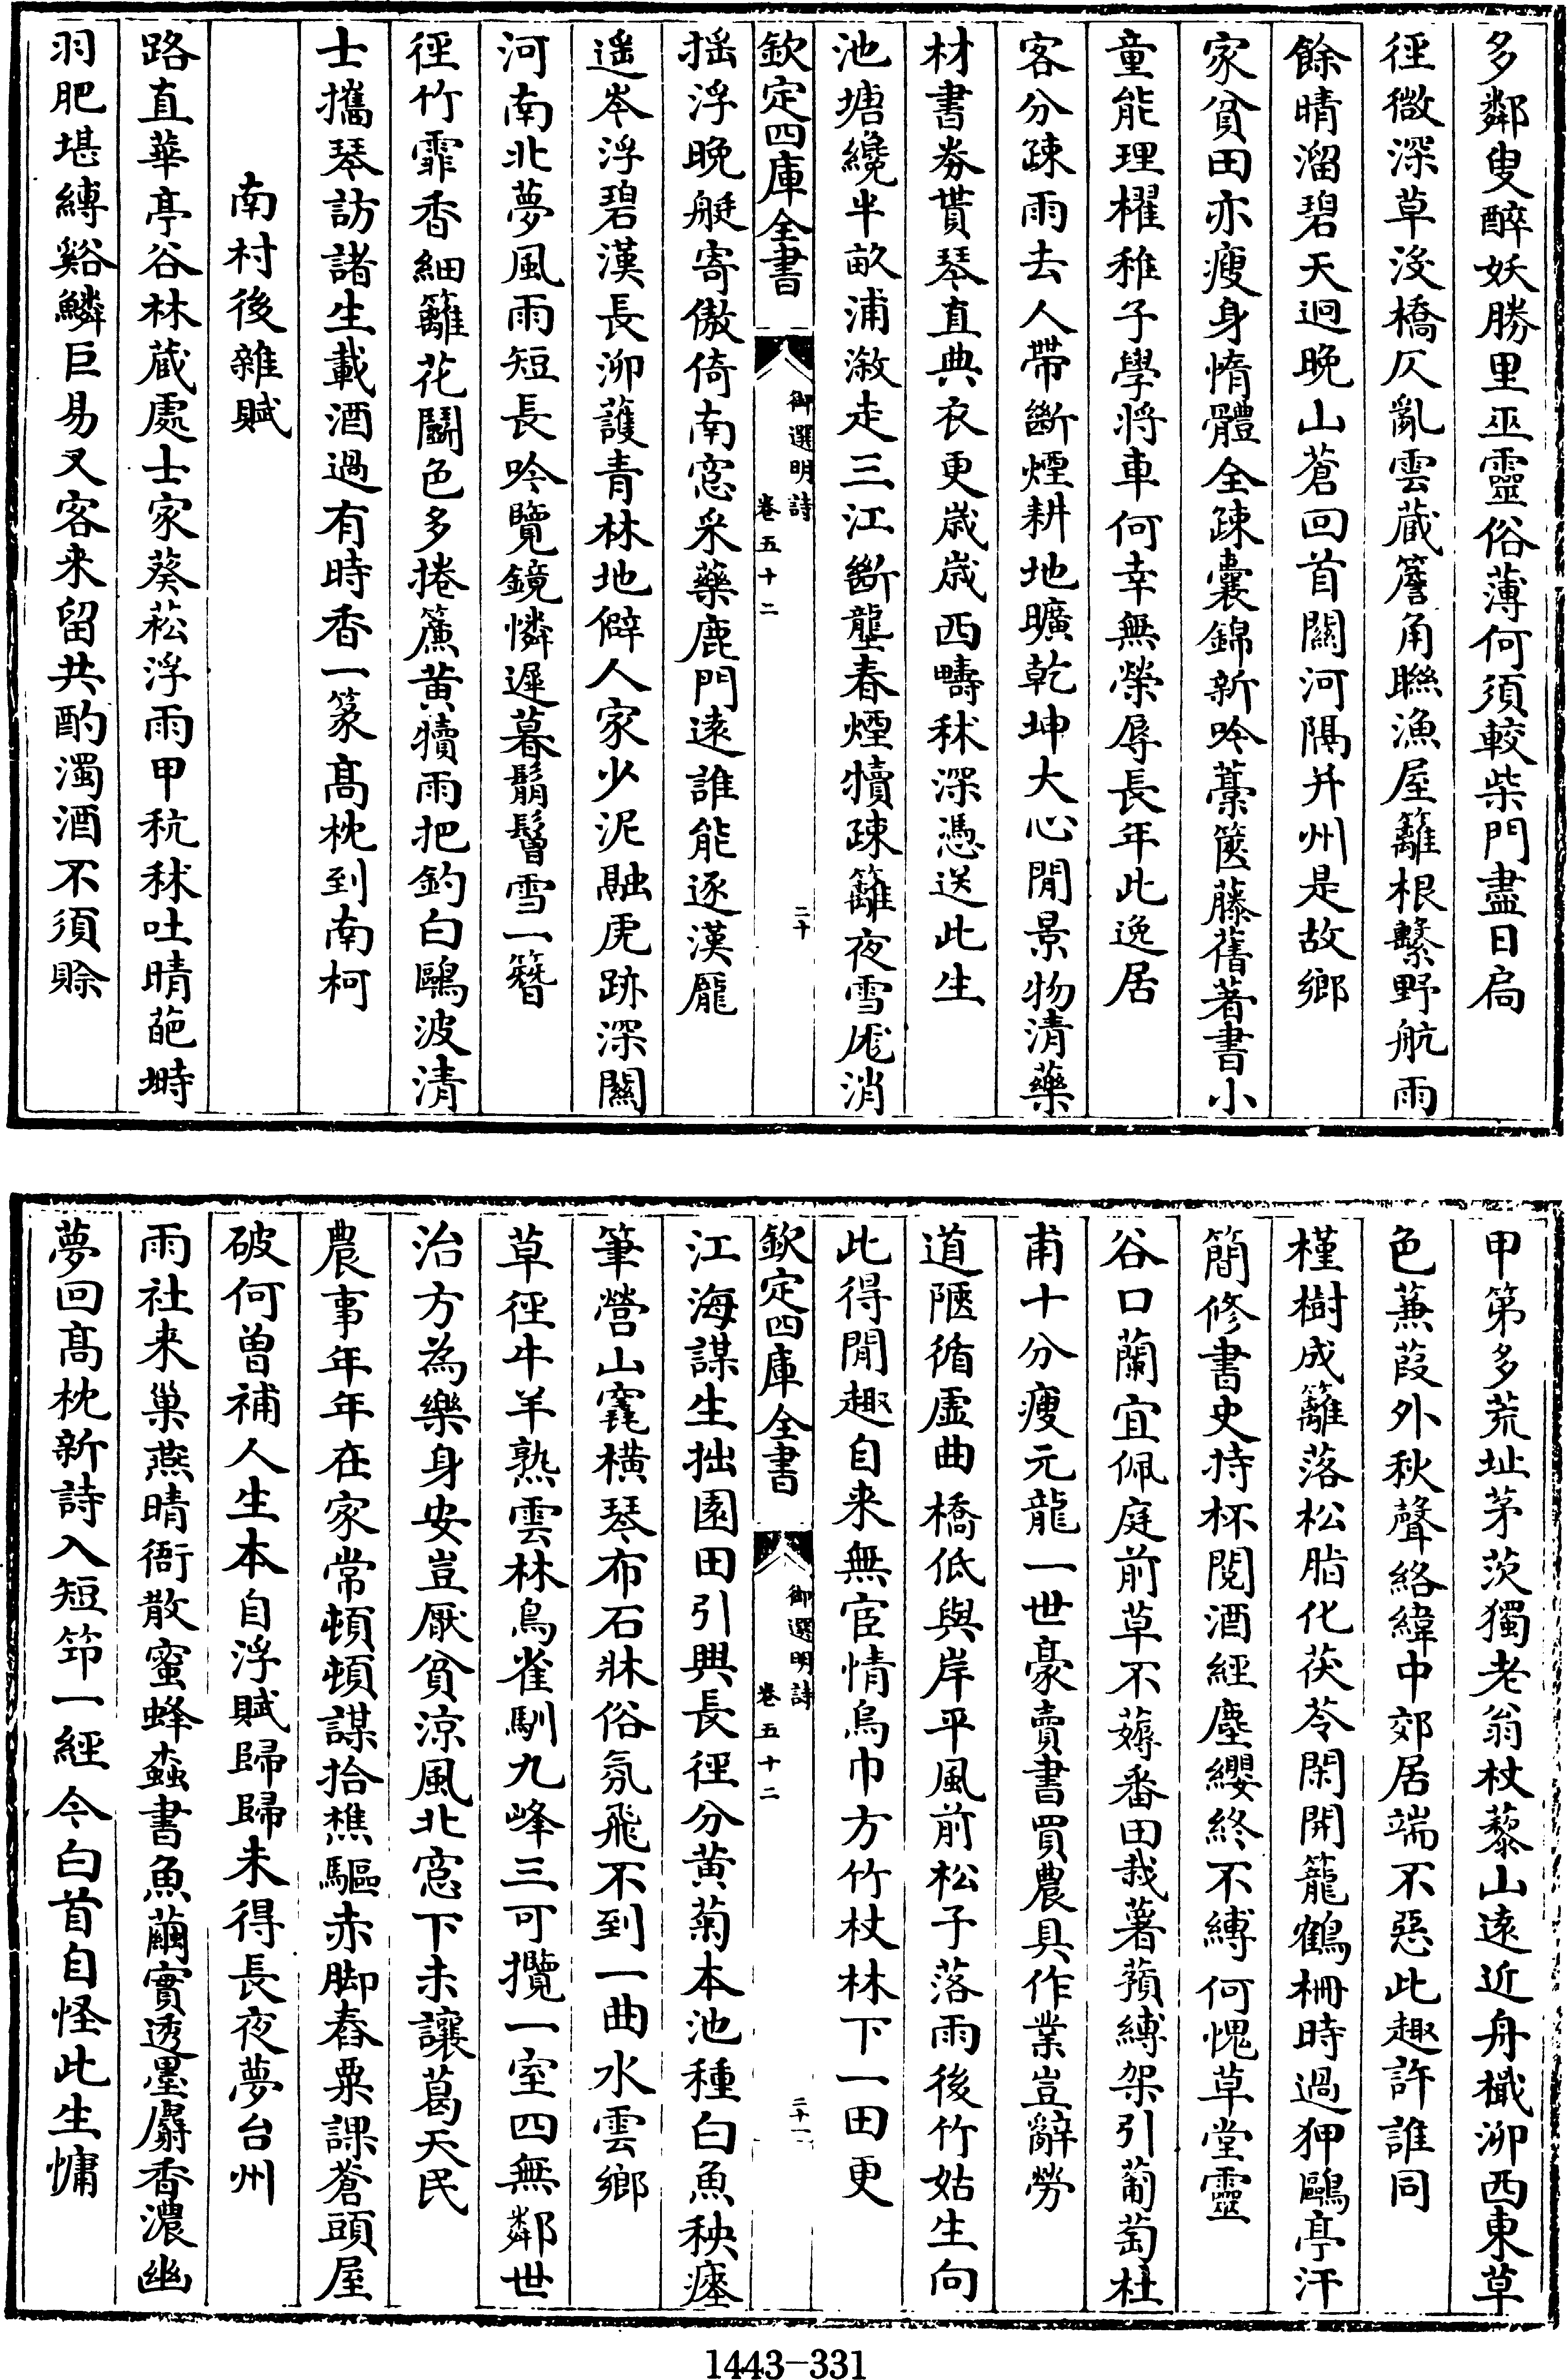 多鄰叟醉妖勝里巫靈俗薄何須較柴門盡日扃
徑微深草沒橋仄亂雲藏簷角聯漁屋籬根繫野航雨
餘晴溜碧天迥晚山蒼回首關河隔并州是故鄉
家貧田亦瘦身惰體全疎囊錦新吟藁篋藤舊著書小
童能理櫂稚子學將車何幸無榮辱長年此逸居
客分疎雨去人帶斷煙耕地曠乾坤大心閒景物清藥
材書券貰琴直典衣更歲歲西疇秫深憑送此生
池塘纔半畝浦漵走三江斷壟春煙犢疎籬夜雪尨消
欽定四庫全書
御選明詩
卷五十二
二十
揺浮晚艇寄傲倚南窓采藥鹿門遠誰能逐漢龎
遥岑浮碧漢長泖護青林地僻人家少泥融虎跡深關
河南北夢風雨短長吟覽鏡憐遲暮鬅鬙雪一簪
徑竹霏香細籬花鬭色多捲簾黃犢雨把釣白鷗波清
士攜琴訪諸生載酒過有時香一篆高枕到南柯
南村後雜賦
路直華亭谷林藏處士家葵菘浮雨甲秔秫吐晴葩塒
羽肥堪縛谿鱗巨易叉客来留共酌濁酒不須賒
甲第多荒址茅茨獨老翁杖藜山遠近舟檥泖西東草
色蒹葭外秋聲絡緯中郊居端不惡此趣許誰同
槿樹成籬落松脂化茯苓閑開籠鶴柵時過狎鷗亭汗
簡修書史持杯閱酒經塵纓終不縛何愧草堂靈
谷口蘭宜佩庭前草不薅番田栽薯蕷縛架引葡萄杜
甫十分瘦元龍一世豪賣書買農具作業豈辭勞
道陿循虛曲橋低與岸平風前松子落雨後竹姑生向
此得閒趣自来無宦情烏巾方竹杖林下一田更
欽定四庫全書
御選明詩
卷五十二
二十一
江海謀生拙園田引興長徑分黃菊本池種白魚秧瘞
筆營山窀橫琴布石牀俗氛飛不到一曲水雲鄉
草徑牛羊熟雲林鳥雀馴九峰三可攬一室四無鄰世
治方為樂身安豈厭貧涼風北窓下未讓葛天民
農事年年在家常頓頓謀拾樵驅赤脚舂粟課蒼頭屋
破何曾補人生本自浮賦歸歸未得長夜夢台州
雨社来巢燕晴衙散蜜蜂蟲書魚繭實透墨麝香濃幽
夢回高枕新詩入短笻一經今白首自怪此生慵
1443-331